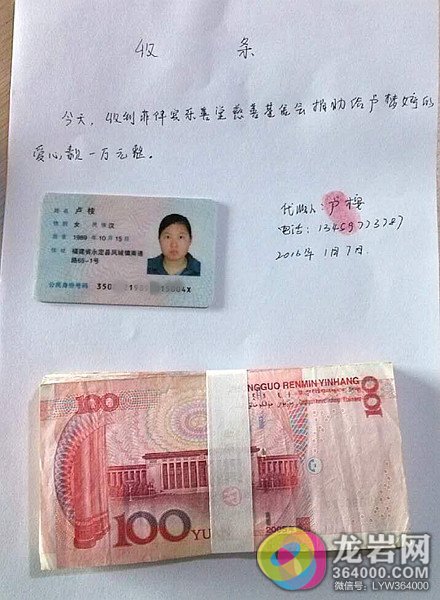 收 条
今天,收到菲律宾乐善堂慈善基金会捐助给卢梦婷的
爱心款一万元整。
代收人:卢桂
电话:13459773787
2016年1月7日.
姓名 卢桂
性别 女 民族 汉
出生 1989年10月15日
住址 福建省永定县凤城镇南通
路65-1号
公民身份号码 350
NGGUO RENMIN YINHANG
100
100
100 YU
2005
龙岩网
364000.com
微信号:LYW364000